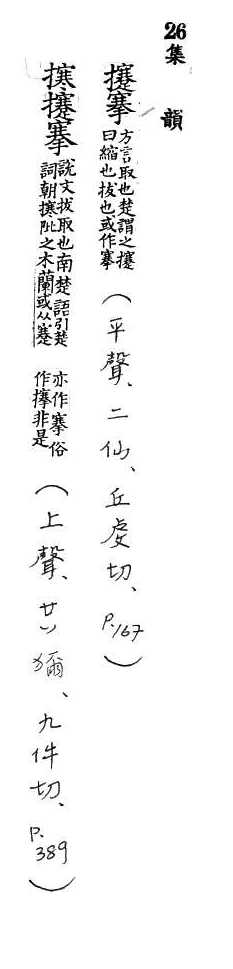 26 集韻
攓搴 方言取也楚謂之攓
曰縮也拔也或作搴
(平聲、二仙、丘虔切、P.167)
㩃攓搴 說文拔取也南楚語引楚
詞朝㩃阰之木蘭或从蹇
亦作搴俗
作非是
(上聲、廿八獮、九件切、P.389)